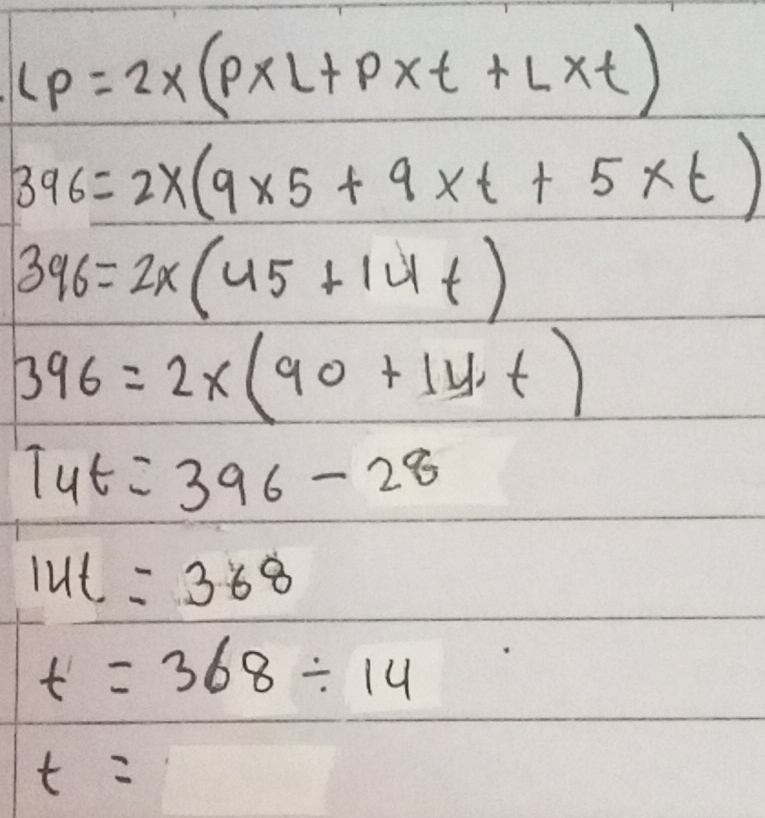 LP = 2 x (P x L + P x t + L x t)
396 = 2 x (9 x 5 + 9 x t + 5 x t)
396 = 2x (45 + 14 t)
396 = 2 x (90 + 14 t)
14t = 396 - 28
14t = 368
t = 368 ÷ 14
t =